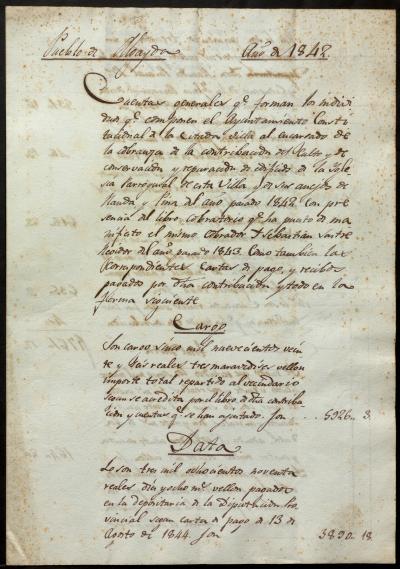 Pueblo de Algayda Año de 1842.
Cuentas generales qᵉ forman los indivi-
duos qᵉ componen el Ayuntamiento Consti-
tucional de la citada villa al encargado de
la cobranza de la contribucion del Culto y de
conservacion y reparacion de edificios de la Igle-
sia Parroquial de esta Villa y de sus anejos de
Randa y Pina del año pasado 1842 con pre-
sencia del libro cobratorio qᵉ ha puesto de ma-
nifiesto el mismo cobrador Sebastian Sastre
Regidor del año pasado 1843. Como tambien las
correspondientes cartas de pago, y recibos
pagados por dicha contribucion y todo en la
forma siguiente
Cargo
Son cargo cinco mil nuevecientos vein-
te y seis reales tres maravedises vellon
importe total repartido al vecindario
segun se acredita por el libro de dicha contribu-
cion y cuentas qᵉ se han ajustado. Son 5926 3.
Data
Lo son tres mil ochocientos noventa
reales diez y ocho mˢ vellon pagados
en la depositaria de la Diputacion Pro-
vincial segun carta de pago de 13 de
Agosto de 1844. Son 3890 18